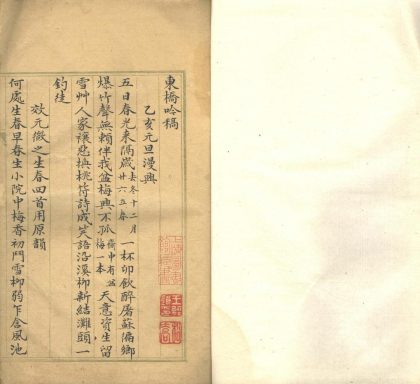 東橋吟稿
乙亥元旦漫興
五日春光來隔歲去冬十二月廿六立春一杯卯飲醉屠蘇隔鄉
爆竹聲無賴伴我盆梅興不孤齋中有盆梅一本天意資生留
雪艸人家禳忌換桃符詩成笑語沿溪柳新結灘頭一
釣徒
效元微之生春四首用原韻
何處生春早春生小院中梅香初鬥雪柳弱乍含風池